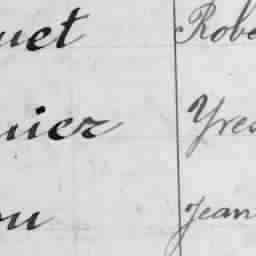 uet Robe
nier Yves
ou Jean